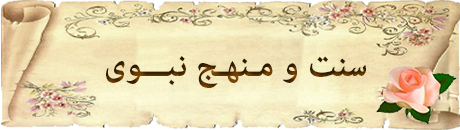 سنت و منهج نبوی